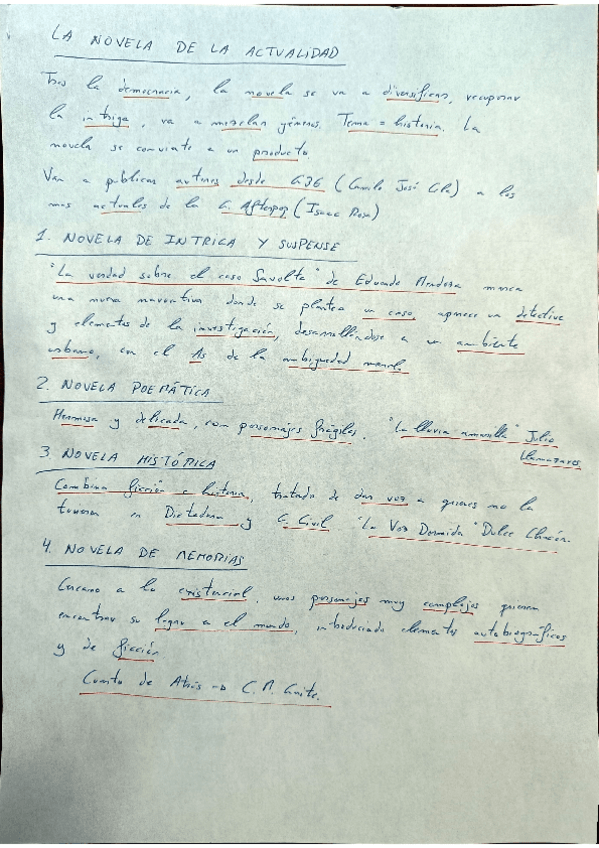 LA NOVELA DE LA ACTUALIDAD
Tras la democracia, la novela se va a diversificar, recuperar
la intriga, va a mezclar géneros. Tema = historia. La
novela se convierte a un producto.
Van a publicar autores desde G36 (Camilo José Cela) a los
mas actuales de la G. Afterpop (Isaac Rosa)
1. NOVELA DE INTRIGA Y SUSPENSE
"La verdad sobre el caso Savolta" de Eduardo Mendoza marca
una nueva narrativa donde se plantea un caso, aparece un detective
y elementos de la investigación, desarrollándose a un ambiente
urbano, con el As de la ambigüedad moral.
2. NOVELA POEMÁTICA
Hermosa y delicada, con personajes frágiles. "La lluvia amarilla" Julio
Llamazares
3. NOVELA HISTÓRICA
Combina ficción e historia, tratada de dar voz a quienes no la
tuvieron en Dictadura y G. Civil "La Voz Dormida" Dulce Chacón.
4. NOVELA DE MEMORIAS
Cercano a lo existencial, unos personajes muy complejos quieren
encontrar su lugar a el mundo, introduciendo elementos autobiográficos
y de ficción
Cuarto de Atrás → C. M. Gaite.